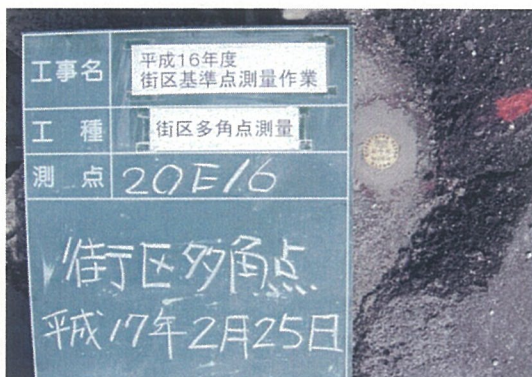 工事名
平成16年度
街区基準点測量作業
工種
街区多角点測量
測点
20E16
街区多角点
平成17年2月25日